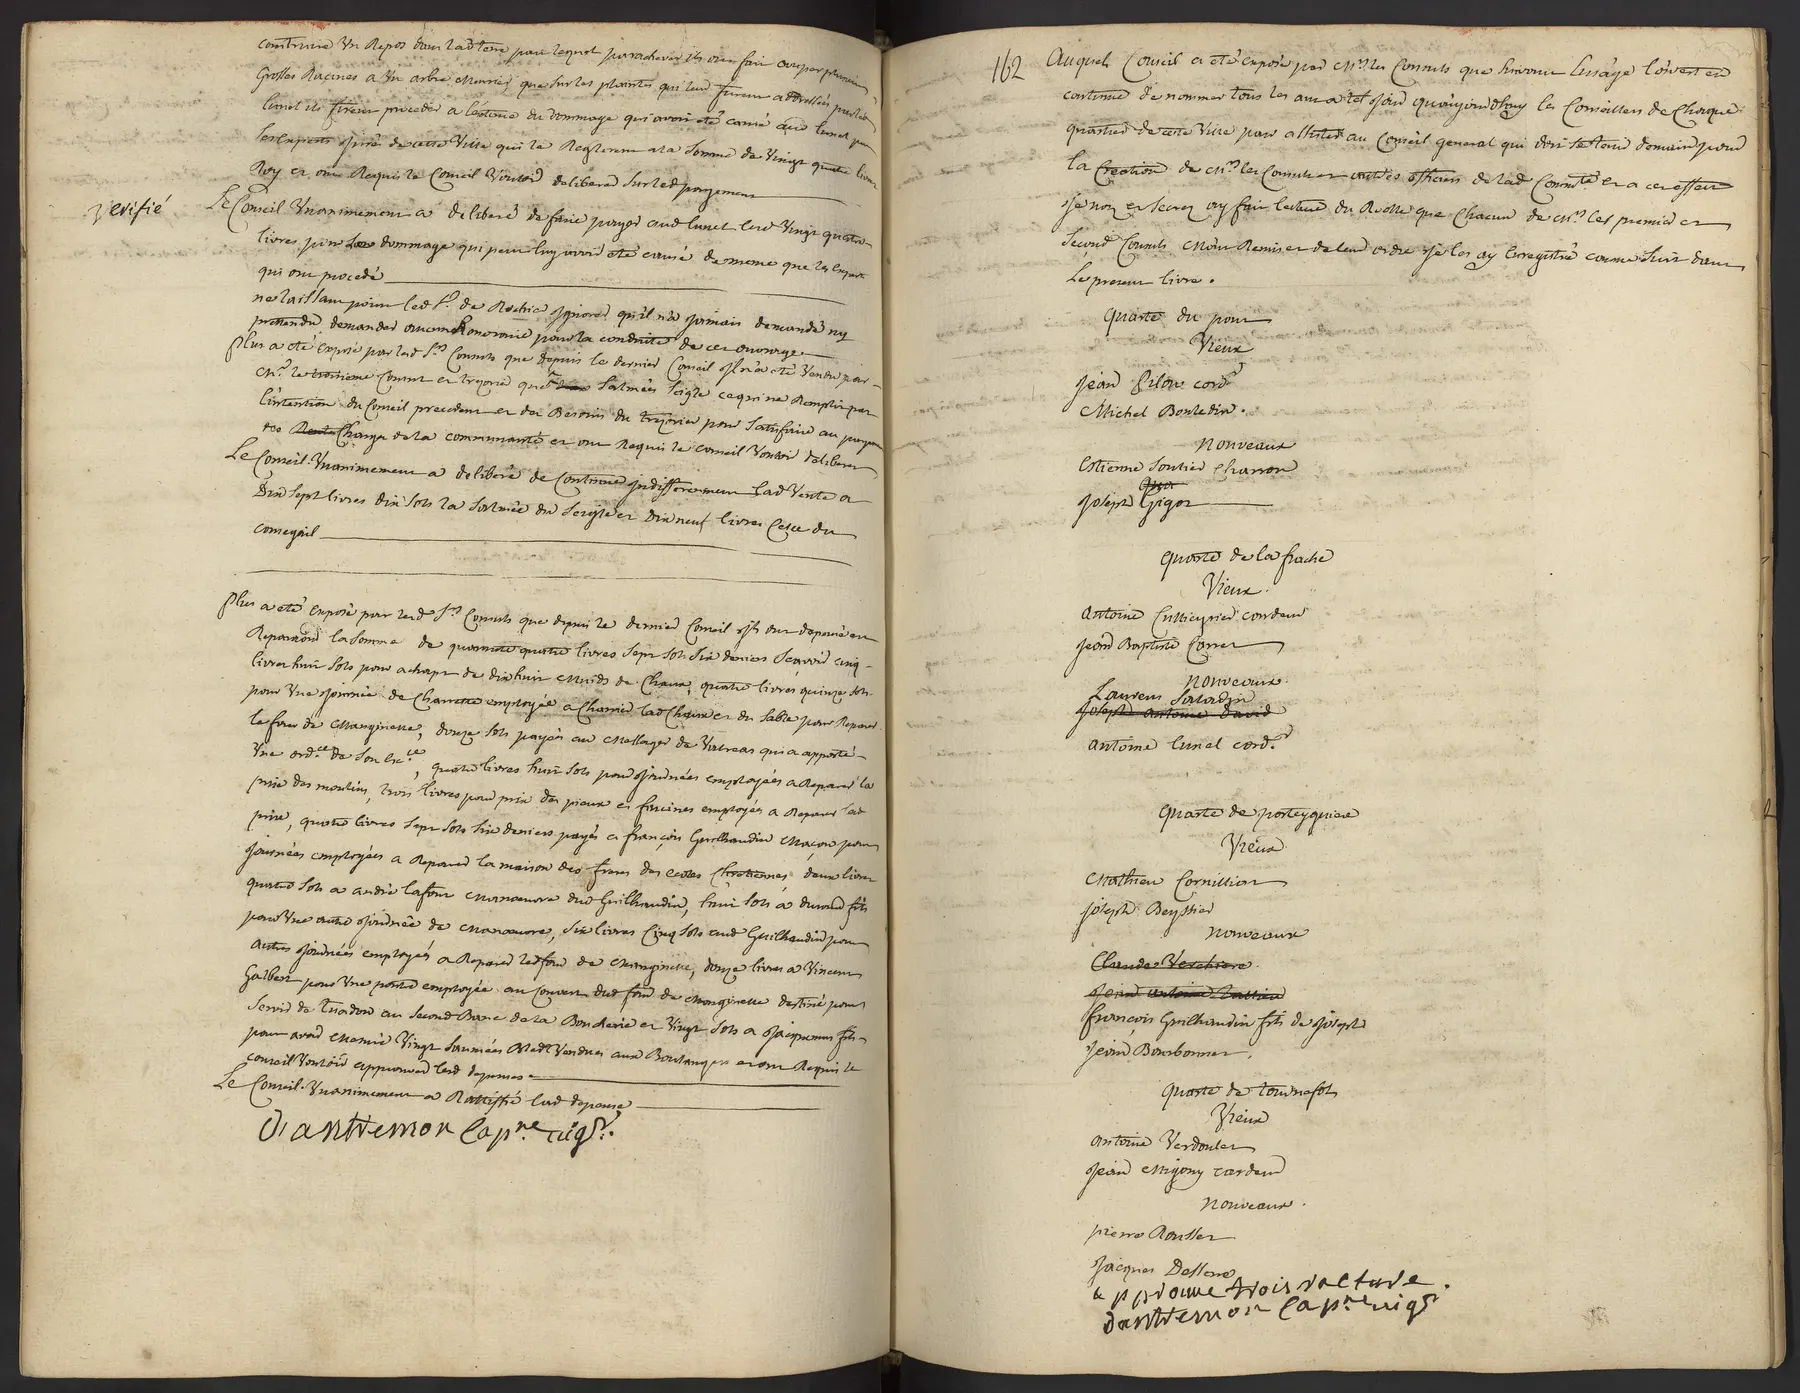 construire un Repos dans lad terre pour lequel parachever ils ont fait couper plusieurs
Grosses Racines a un arbre meurier, que sur les plaintes qui leur furent addressées par led
lunel ils firent proceder a l'estime du dommage qui avoit eté causé aud lunel par
les experts juré de cette Ville qui le Reglerent a la somme de Vingt quatre livres
Roy et ont Requis le Conseil Vouloir deliberer sur led payement
Verifié
Le Conseil Unanimement a deliberé de faire payer aud lunel lesd Vingt quatre
livres pour le dommage qui peut luy avoir eté causé de meme que les experts
qui ont procedé
ne laissant point led Sr. de ignorer qu'il n'a jamais demandé ny
pretendu demander aucun honoraire pour la conduite de cet ouvrage
Plus a eté exposé par lesd Srs Consuls que depuis le dernier Conseil il n'a eté Vendu par
Mr. le troisieme Consul et tresorier que salmées seigle ce qui ne Remplit pas
l'intention du Conseil precedent et des Besoins du tresorier pour satisfaire au payement
des Charges de la communauté et ont Requis le Conseil Vouloir deliberer
Le Conseil Unanimement a deliberé de Continuer indifferemment lad Vente a
Dix sept livres dix sols la salmée du seigle et Dix neuf livres Celle du
consegail
Plus a eté exposé par lesd Srs Consuls que depuis le dernier Conseil ils ont depensé en
Reparations la somme de quarante quatre livres sept sols six deniers scavoir cinq
livres huit sols pour achapt de dix huit Muids de Chaux, quatre livres quinze sols
pour une journée de Charrette employée a Charrier lad Chaux et du sable pour Reparer
le four de Manginette, douze sols payés au Messager de Valreas qui a apporté
Une ordce de son Exce, quatre livres huit sols pour journées employées a Reparer la
prise des moulins, trois livres pour prix des pieux et fascines employés a Reparer lad
prise, quatre livres sept sols six deniers payés a françois Guilhaudin Maçon pour
journées employées a Reparer la maison des freres des ecoles Chretiennes, deux livres
quatre sols a andré lafont Manoeuvre dud Guilhaudin, huit sols a durand fils
pour Une autre journée de Manoeuvre, six livres Cinq sols aud Guilhaudin pour
autres journées employés a Reparer led four de Manginette, douze livres a Vincent
Galbert pour Une porte employée au Couvert dud four de Manginette destiné pour
servir de au second Banc de la Boucherie et Vingt sols a Jacquemus fils
pour avoir Vingt saumées Bled Vendues aux Boulangers et ont Requis le
Conseil Vouloir approuver lesd depenses
Le Conseil Unanimement a Rattiffié lad depense
Dantremon Capne vigr.
162
Auquel Conseil a eté exposé par Mrs les Consuls que suivant l'usage l'on est en
coutume de nommer tous les ans a tel jour qu'aujourdhuy les Conseillers de Chaque
quartier de cette Ville pour assister au Conseil general qui doit se tenir demain pour
la Creation de Mrs les Consuls et autres officiers de lad Commté et a cet effet
je nore et secre ay fait lecture du Rolle que Chacun de Mrs les premier et
second Consuls m'ont Remis et de leur ordre je les ay enregistré comme suit dans
le present livre.
Quarte du pont
Vieux
Jean cordr
Michel Bouledin.
Nouveaux
Estienne Soutier Charron
Joseph Gigot
Quarte de la frache
Vieux.
Antoine Cussieynier cordeur
Jean Baptiste Corret
Nouveaux.
Laurens Saladin
Joseph Antoine David
Antoine lunel cordr
Quarte de porteyguiere
Vieux
Mathieu Cornillion
Joseph Beyssier
Nouveaux
Claude Verchiere.
Jean Antoine
françois Guilhaudin fils de Joseph
Jean Bourbonnet.
Quarte de tournefol
Vieux
Antoine Verdoulet
Jean Migony cardeur
Nouveaux.
pierre Rousset
Jacques Dellene
approuve trois rature.
Dantremon Capne vigr